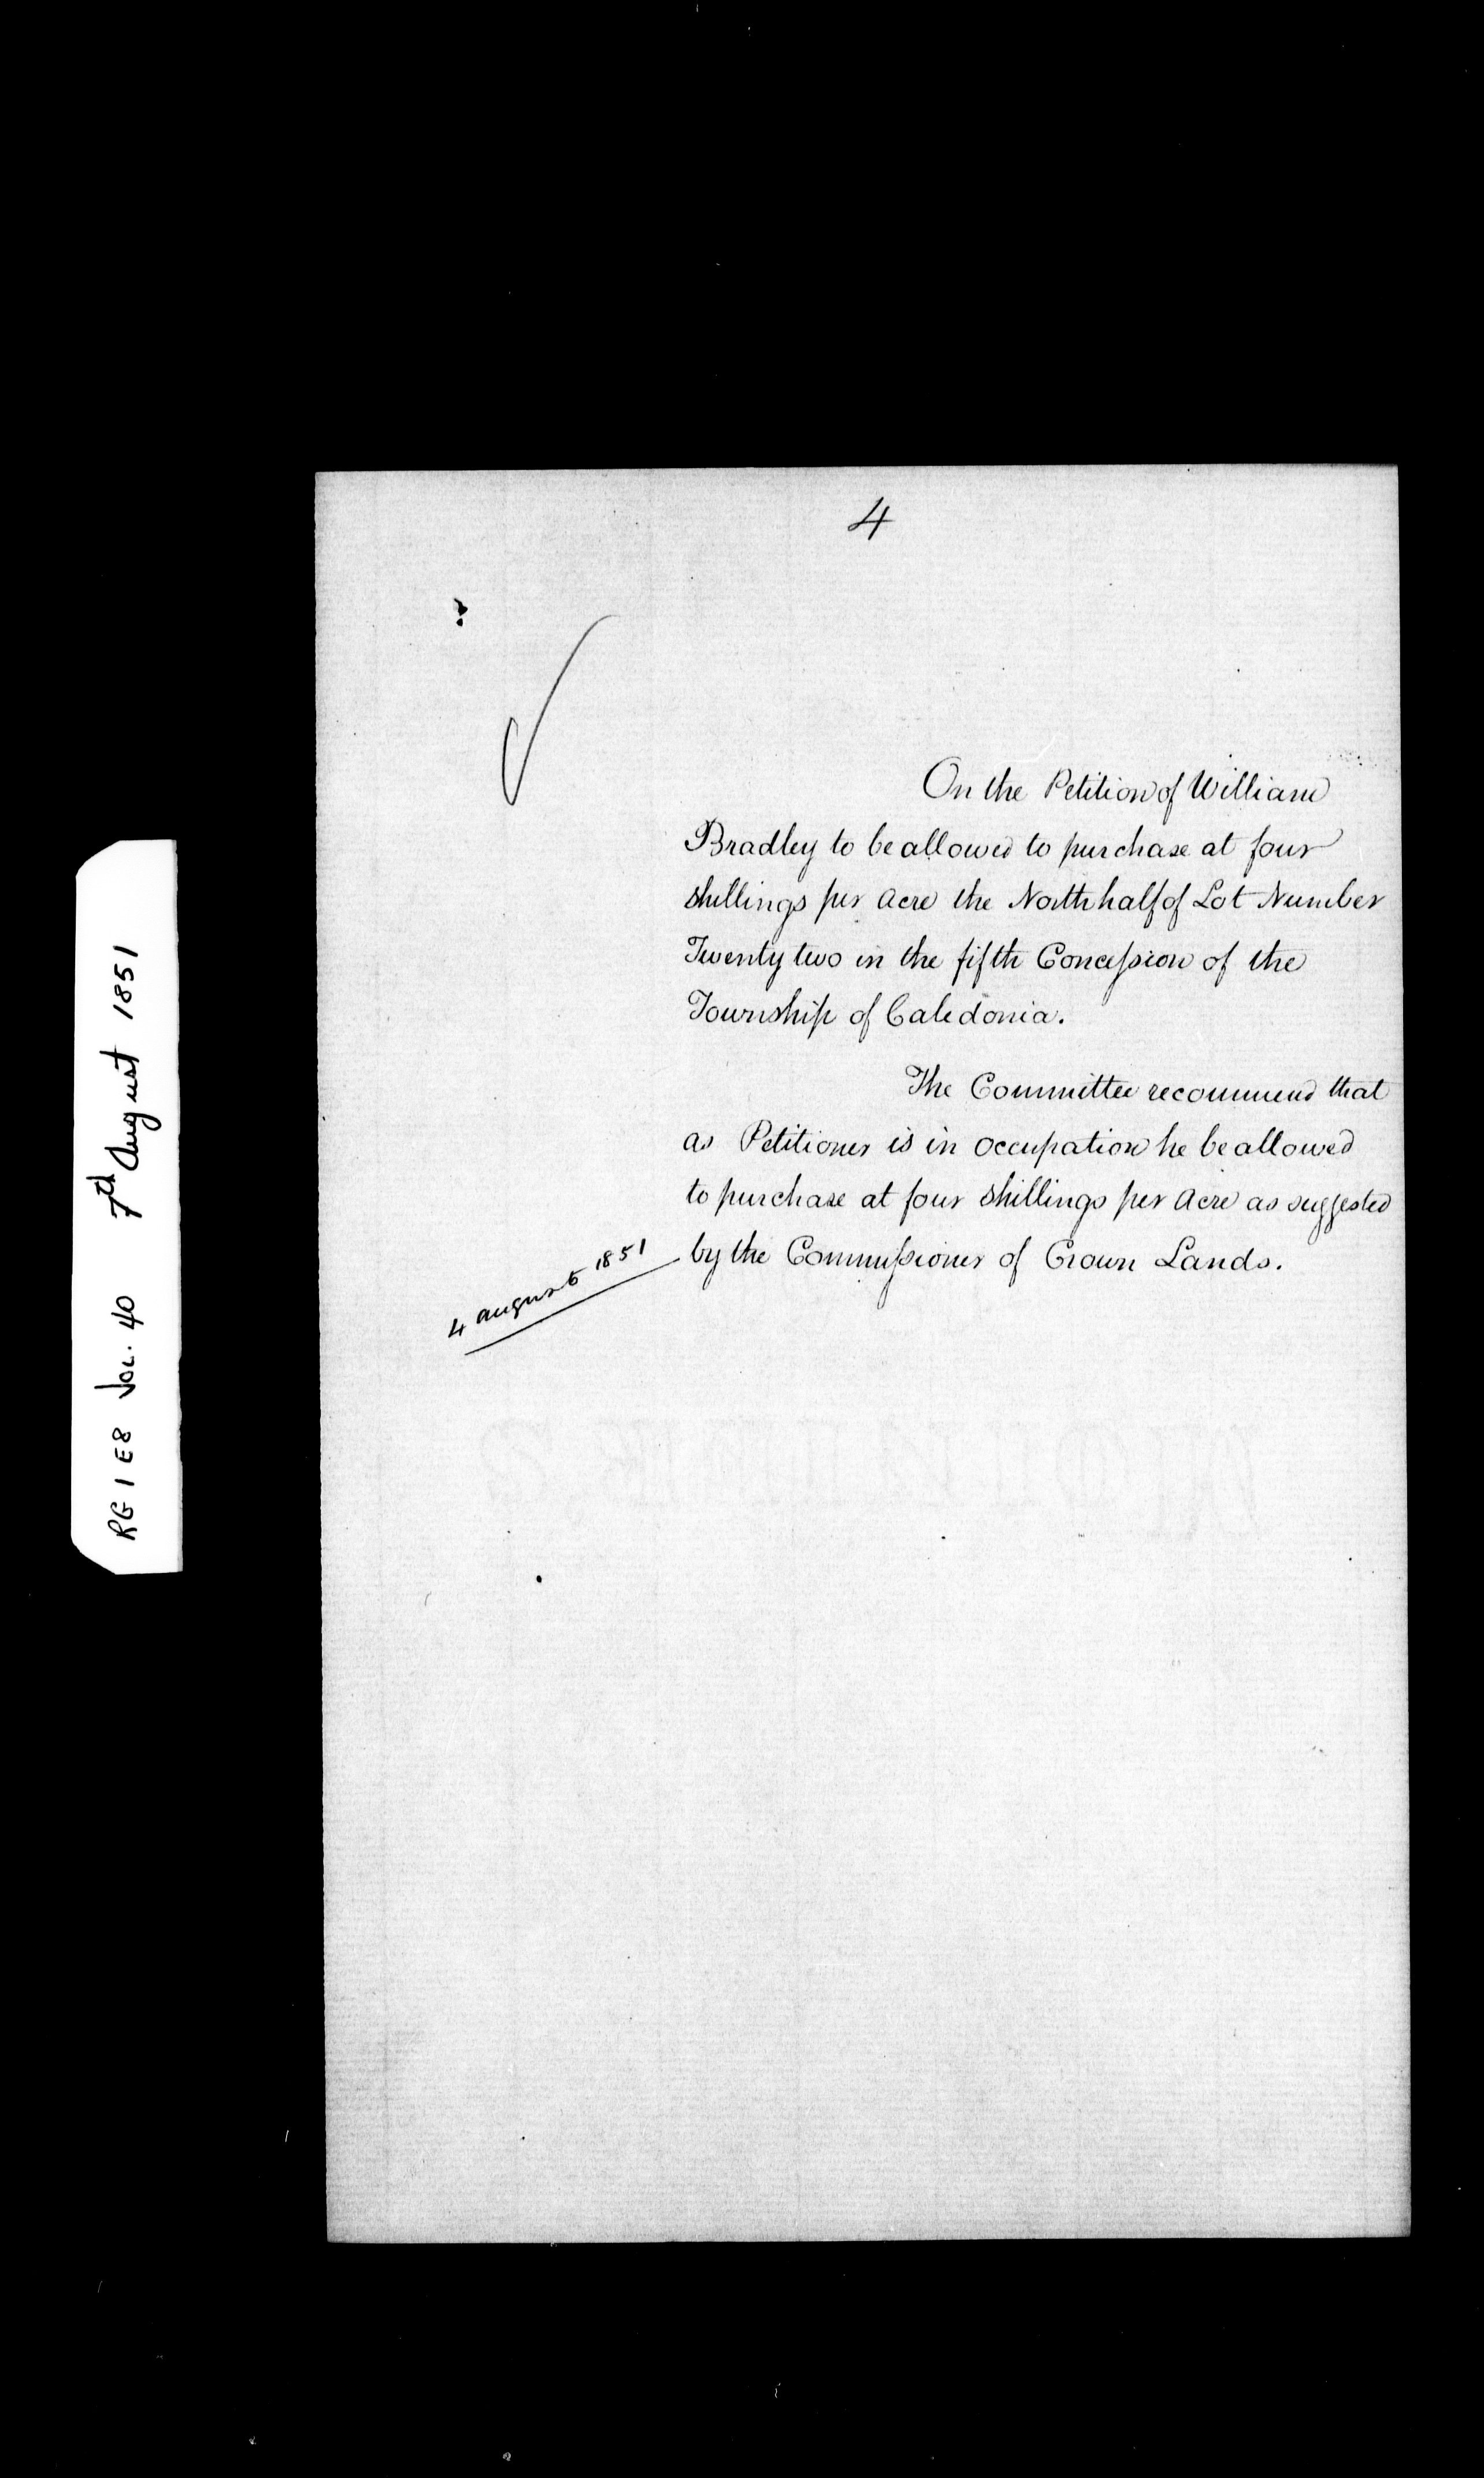 4
On the Petition of William
Bradley to be allowed to purchase at four
shillings per Acre the North half of Lot Number
Twenty two in the fifth Concession of the
Township of Caledonia.
The Committee recommend that
as Petitioner is in occupation he be allowed
to purchase at four shillings per Acre as suggested
by the Commissioner of Crown Lands.
4 august 1851
RG 1 E8 Vol. 40 7th August 1851